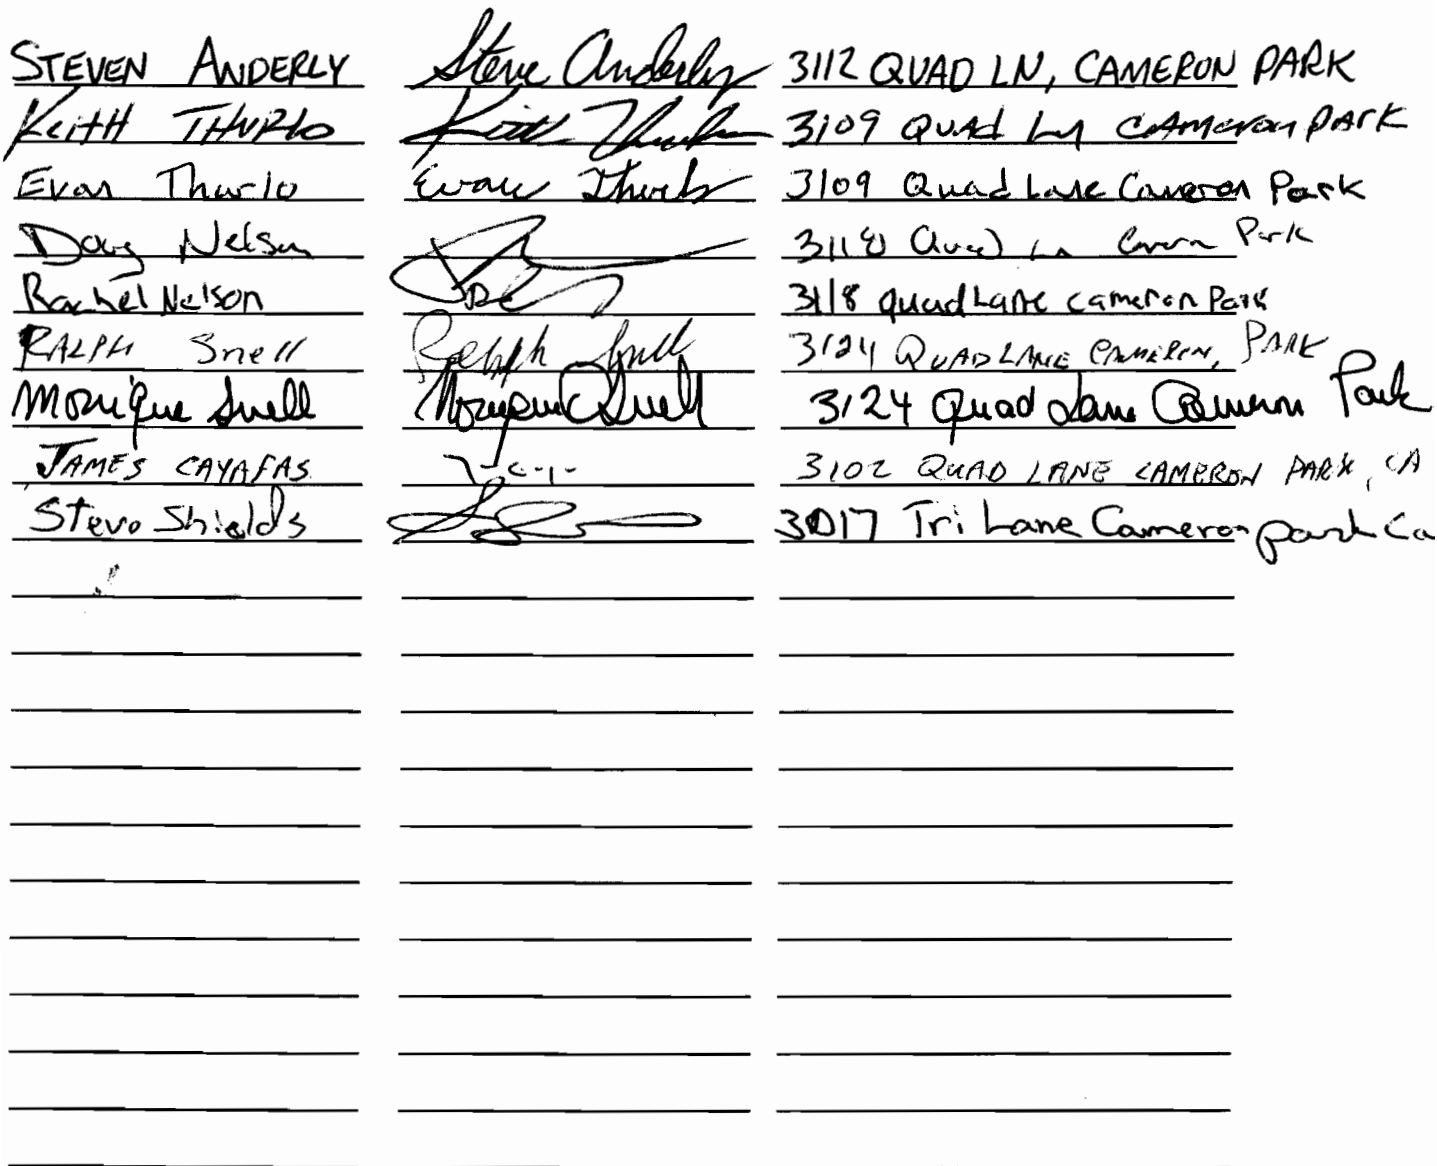 STEVEN ANDERLY Steve Anderly 3112 QUAD LN, CAMERON PARK
KEITH THURLO Keith 3109 QUAD LN CAMERON PARK
Evan Thurlo Evan Thurlo 3109 Quad Lane Cameron Park
Doug Nelson 3118 Quad Ln Park
Rachel Nelson 3118 quad Lane cameron Park
RALPH Snell Ralph Snell 3124 QUAD LANE CAMERON, PARK
Monique Snell Monique Snell 3124 Quad Lane Cameron Park
JAMES CAYAFAS 3102 QUAD LANE CAMERON PARK, CA
Steve Shields 3017 Tri Lane Cameron park Ca